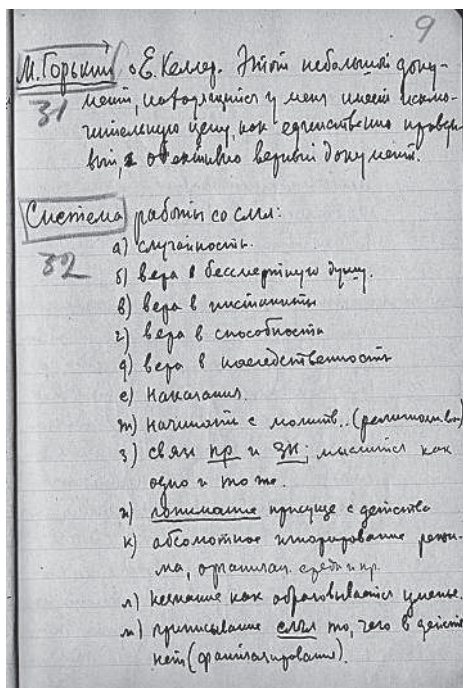 9
М. Горький о Е. Келлер. Этот небольшой доку-
31 мент, находящийся у меня имеет исклю-
чительную цену, как единственно провер-
ный, объективно верный документ.
Система работы со слгл:
32
а) случайность.
б) вера в бессмертную душу.
в) вера в инстинкты
г) вера в способности
д) вера в наследственность
е) наказания.
ж) начинать с молитв..
з) связи пр и зн: мыслится как
одно и то же.
и) понимание присуще с детства
к) абсолютное игнорирование режи-
ма, организац. среды и пр.
л) незнание как образовывается уменье.
м) приписывание слгл то, чего в действ
нет (фантазирование).